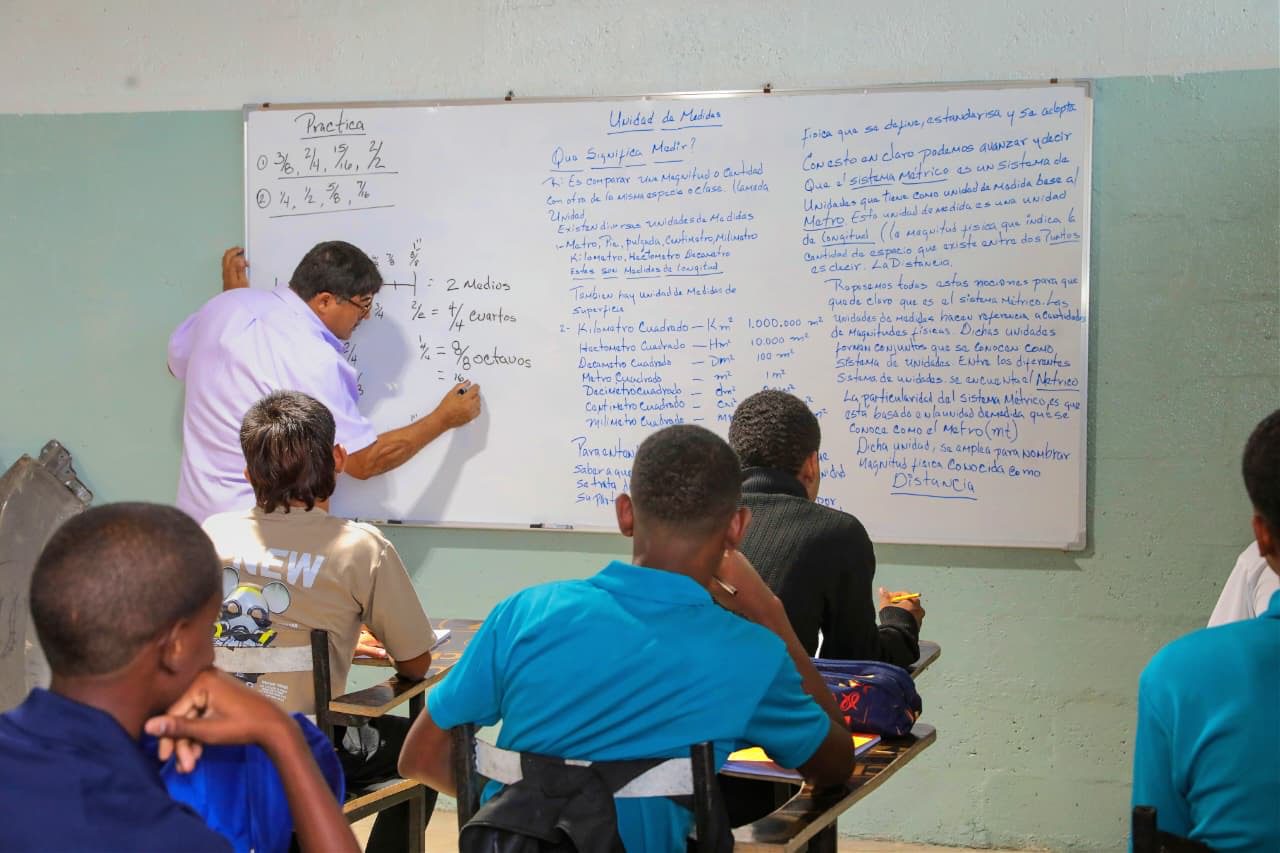 Practica
① 3/8, 2/4, 15/16, 2/2
② 1/4, 1/2, 5/8, 7/16
7/8 8/8 1"
= 2 Medios
3/4 2/2 = 4/4 Cuartos
2/4 4/4 = 8/8 octavos
= 16
Unidad de Medidas
Que Significa Medir?
R: Es comparar una Magnitud o Cantidad
con otro de la misma especie o clase. llamada
Unidad
Existen diversas unidades de Medidas
1- Metro, Pie, pulgada, Centimetro, Milimetro
Kilometro, Hectometro Decametro
Estas son Medidas de longitud
Tambien hay unidad de Medidas de
superficie
2- Kilometro Cuadrado — Km² 1.000.000 m²
Hectometro Cuadrado — Hm² 10.000 m²
Decametro Cuadrado — Dm² 100 m²
Metro Cuadrado — m² 1 m²
Decimetro cuadrado — dm²
Centimetro Cuadrado — Cm²
Milimetro Cuadrado —
Para
saber a que
se trata
fisica que se define, estandarisa y se adopta
Con esto en claro podemos avanzar y decir
Que el sistema Métrico es un sistema de
Unidades que tiene como unidad de Medida base al
Metro. Esta unidad de medida es una unidad
de longitud (la magnitud fisica que indica la
cantidad de espacio que existe entre dos Puntos
es decir: La Distancia.
Repasemos todas estas nociones para que
quede claro que es el sistema Métrico. Las
unidades de medidas hacen referencia a cantidades
de Magnitudes fisicas. Dichas unidades
forman conjuntos que se conocen como
sistema de unidades. Entre los diferentes
Sistema de unidades. se encuentra el Metrico
La particularidad del sistema Métrico, es que
esta basado en la unidad de medida que se
conoce como el Metro (mt)
Dicha unidad, se emplea para Nombrar
Magnitud fisica Conocida como
Distancia
NEW